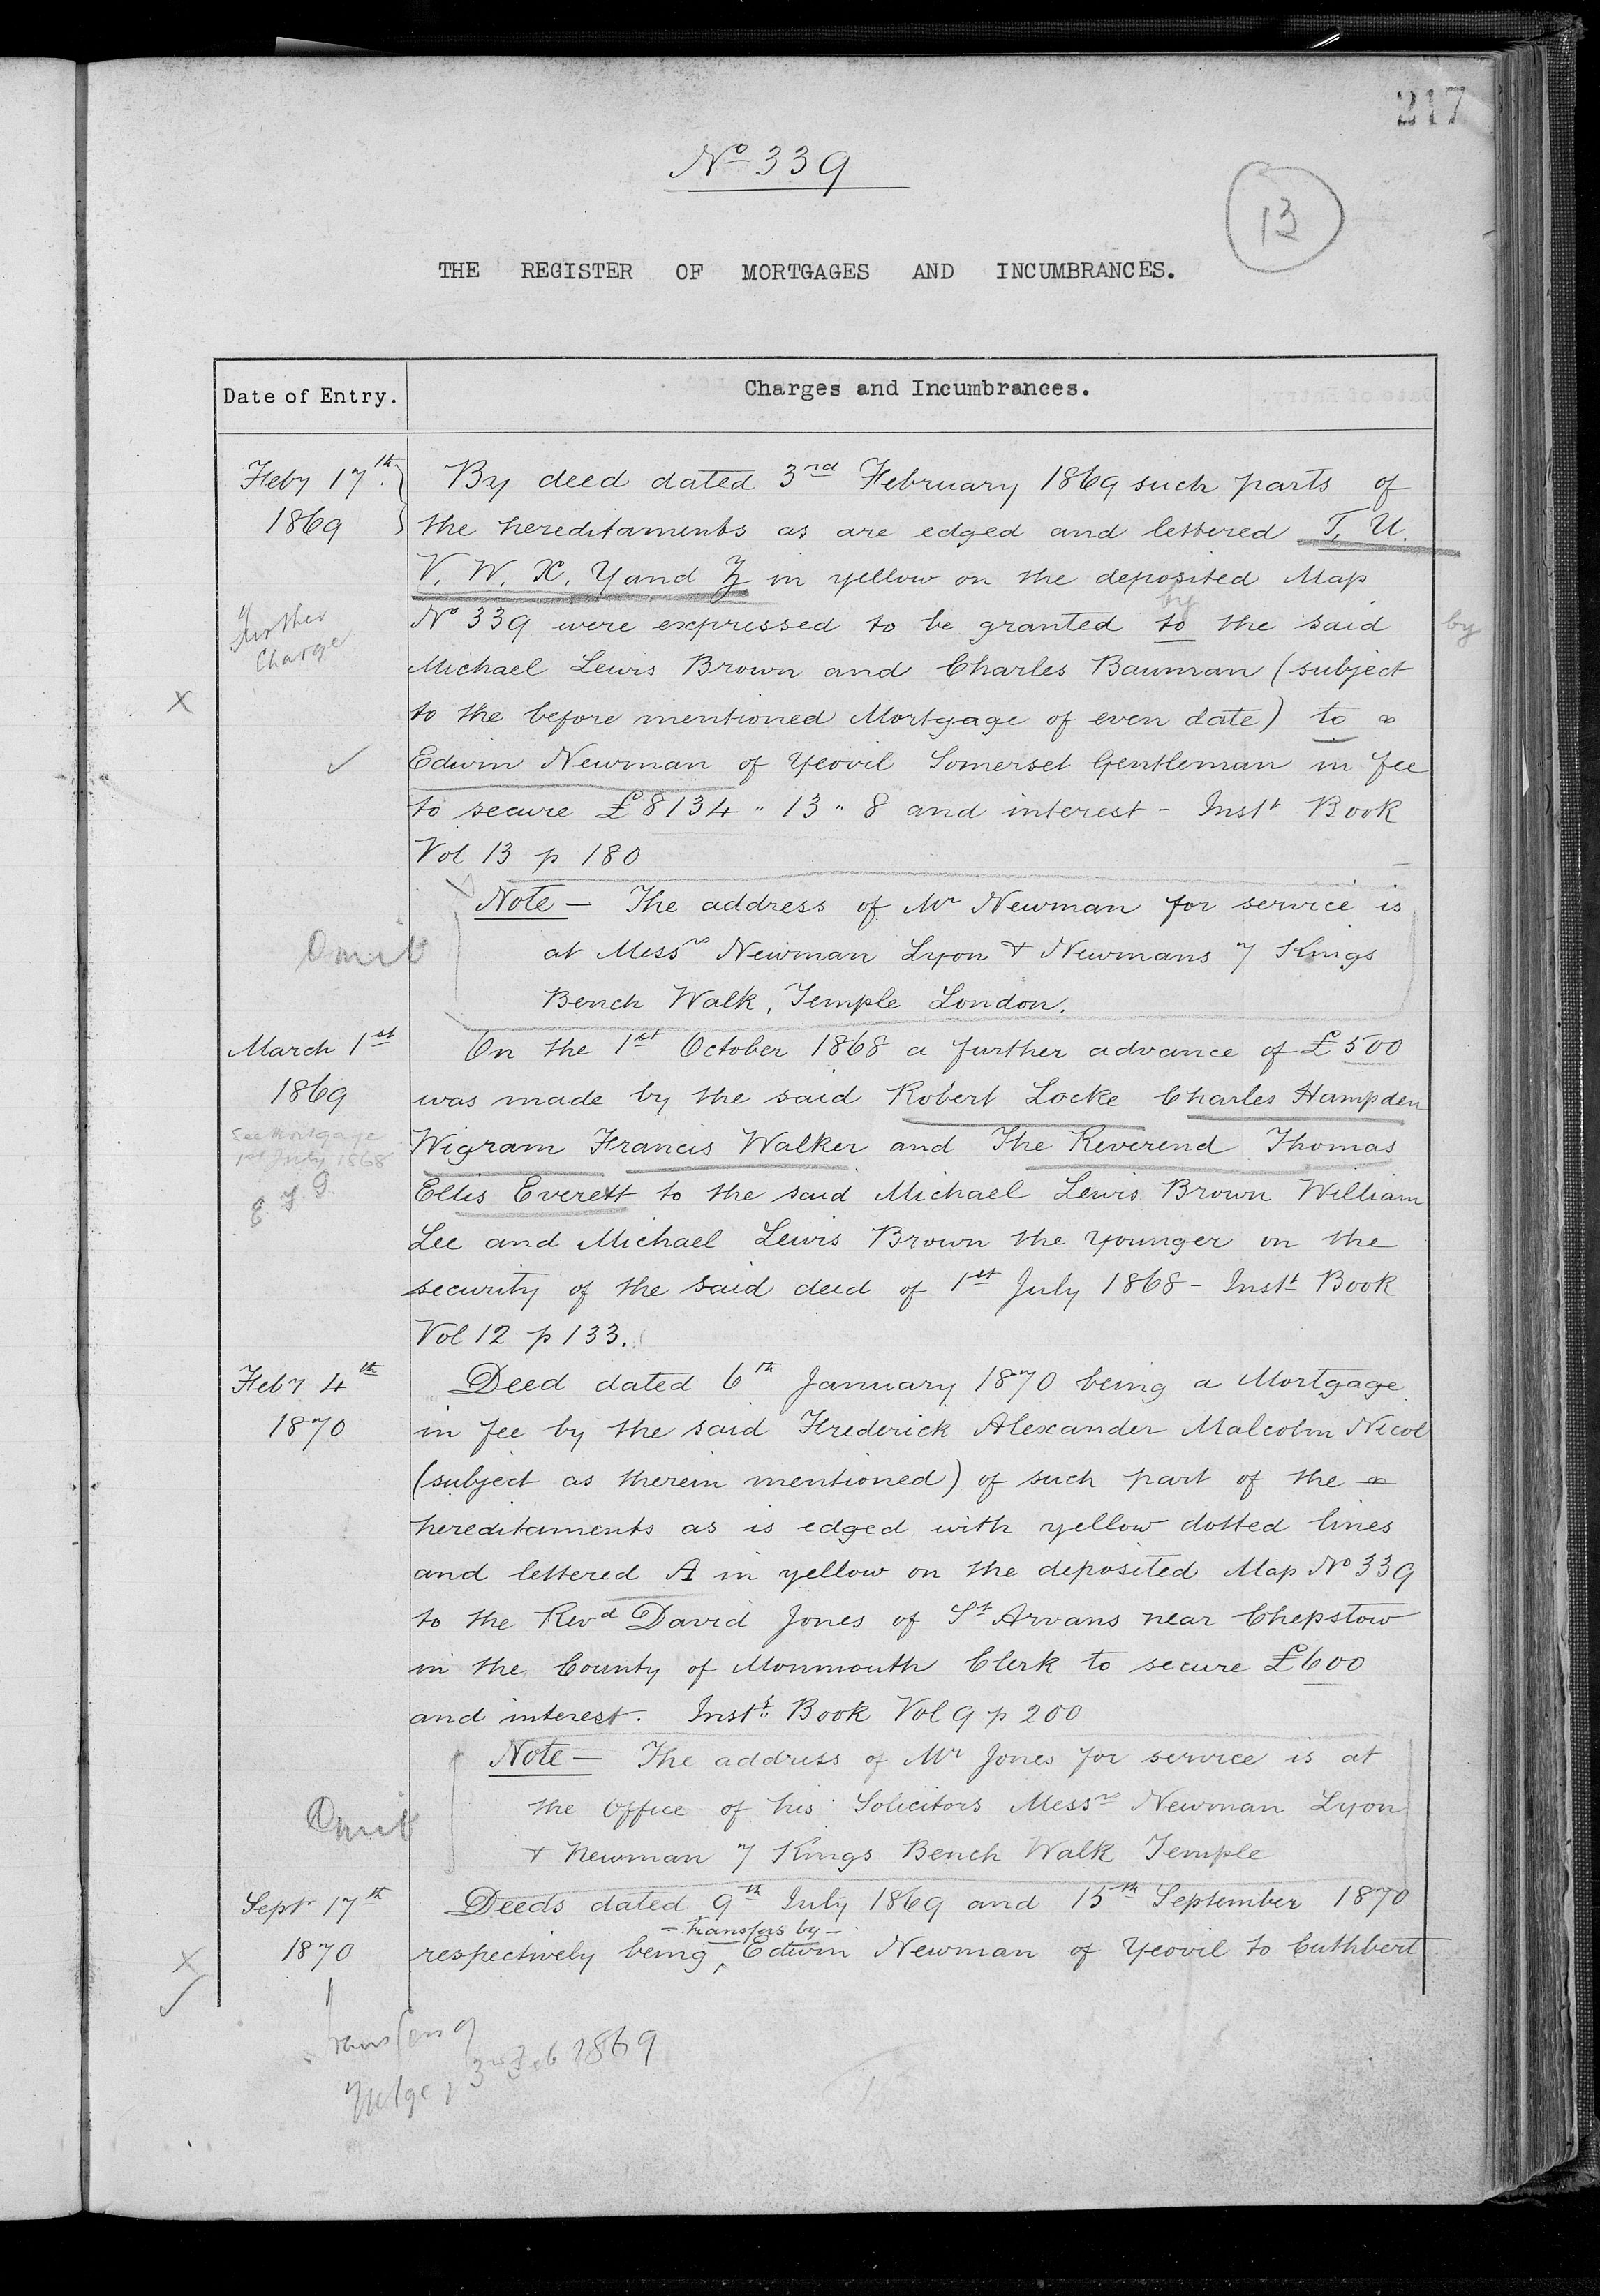 217
No 339
13
THE REGISTER OF MORTGAGES AND INCUMBRANCES.
Date of Entry.
Charges and Incumbrances.
Feby 17th
1869
Further
Charge
By deed dated 3rd February 1869 such parts of
the hereditaments as are edged and lettered T, U.
V. W. X. Y and Z in yellow on the deposited Map
by
No 339 were expressed to be granted to the said
by
Michael Lewis Brown and Charles Bauman (subject
to the before mentioned Mortgage of even date) to
Edwin Newman of Yeovil Somerset Gentleman in fee
to secure £8134 " 13 " 8 and interest - Inst Book
Vol 13 p 180
Omit
Note — The address of Mr Newman for service is
at Messrs Newman Lyon & Newmans 7 Kings
Bench Walk, Temple London.
March 1st
1869
See Mortgage
1st July 1868
On the 1st October 1868 a further advance of £500
was made by the said Robert Locke Charles Hampden
Wigram Francis Walker and The Reverend Thomas
Ellis Everett to the said Michael Lewis Brown William
Lee and Michael Lewis Brown the younger on the
security of the said deed of 1st July 1868 - Inst Book
Vol 12 p 133.
Feby 4th
1870
Deed dated 6th January 1870 being a Mortgage
in fee by the said Frederick Alexander Malcolm Nicol
(subject as therein mentioned) of such part of the
hereditaments as is edged with yellow dotted lines
and lettered A in yellow on the deposited Map No 339
to the Revd David Jones of St Arvans near Chepstow
in the County of Monmouth Clerk to secure £600
and interest. Inst Book Vol 9 p 200
Omit
Note — The address of Mr Jones for service is at
the Office of his Solicitors Messrs Newman Lyon
& Newman 7 Kings Bench Walk Temple
Sept 17th
1870
Deeds dated 9th July 1869 and 15th September 1870
- Transfers by -
respectively being, Edwin Newman of Yeovil to Cuthbert
3rd Feb 1869